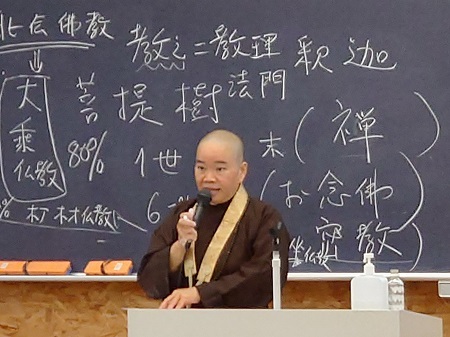 北伝佛教
教え=教理
法門
釈迦
大乗仏教
菩提樹
80%
1世
末
(禅)
(お念佛
密教)
%
6